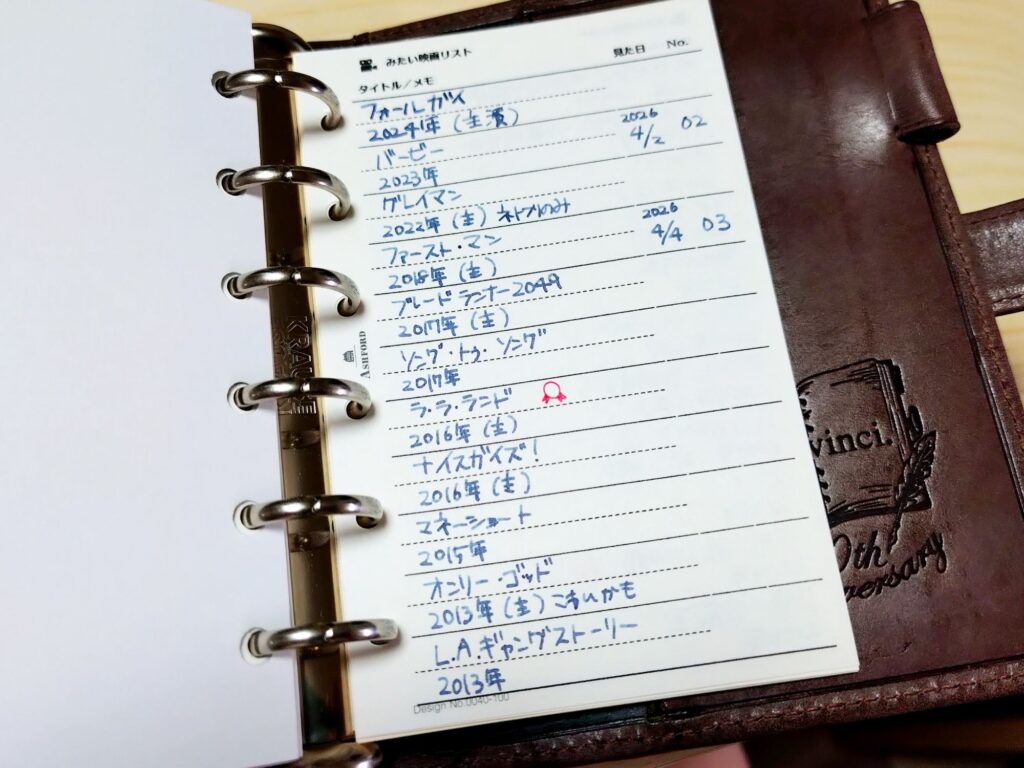 みたい映画リスト
見た日 No.
タイトル／メモ
フォールガイ
2024年 (主演)
バービー 2026 4/2 02
2023年
グレイマン
2022年 (主) ネトフリのみ
ファースト・マン 2026 4/4 03
2018年 (主)
ブレードランナー2049
2017年 (主)
ソング・トゥ・ソング
2017年
ラ・ラ・ランド
2016年 (主)
ナイスガイズ!
2016年 (主)
マネーショート
2015年
オンリー・ゴッド
2013年 (主) こわいかも
L.A.ギャングストーリー
2013年
Design No.0040-100
ASHFORD
KRAUSE
vinci.
0th